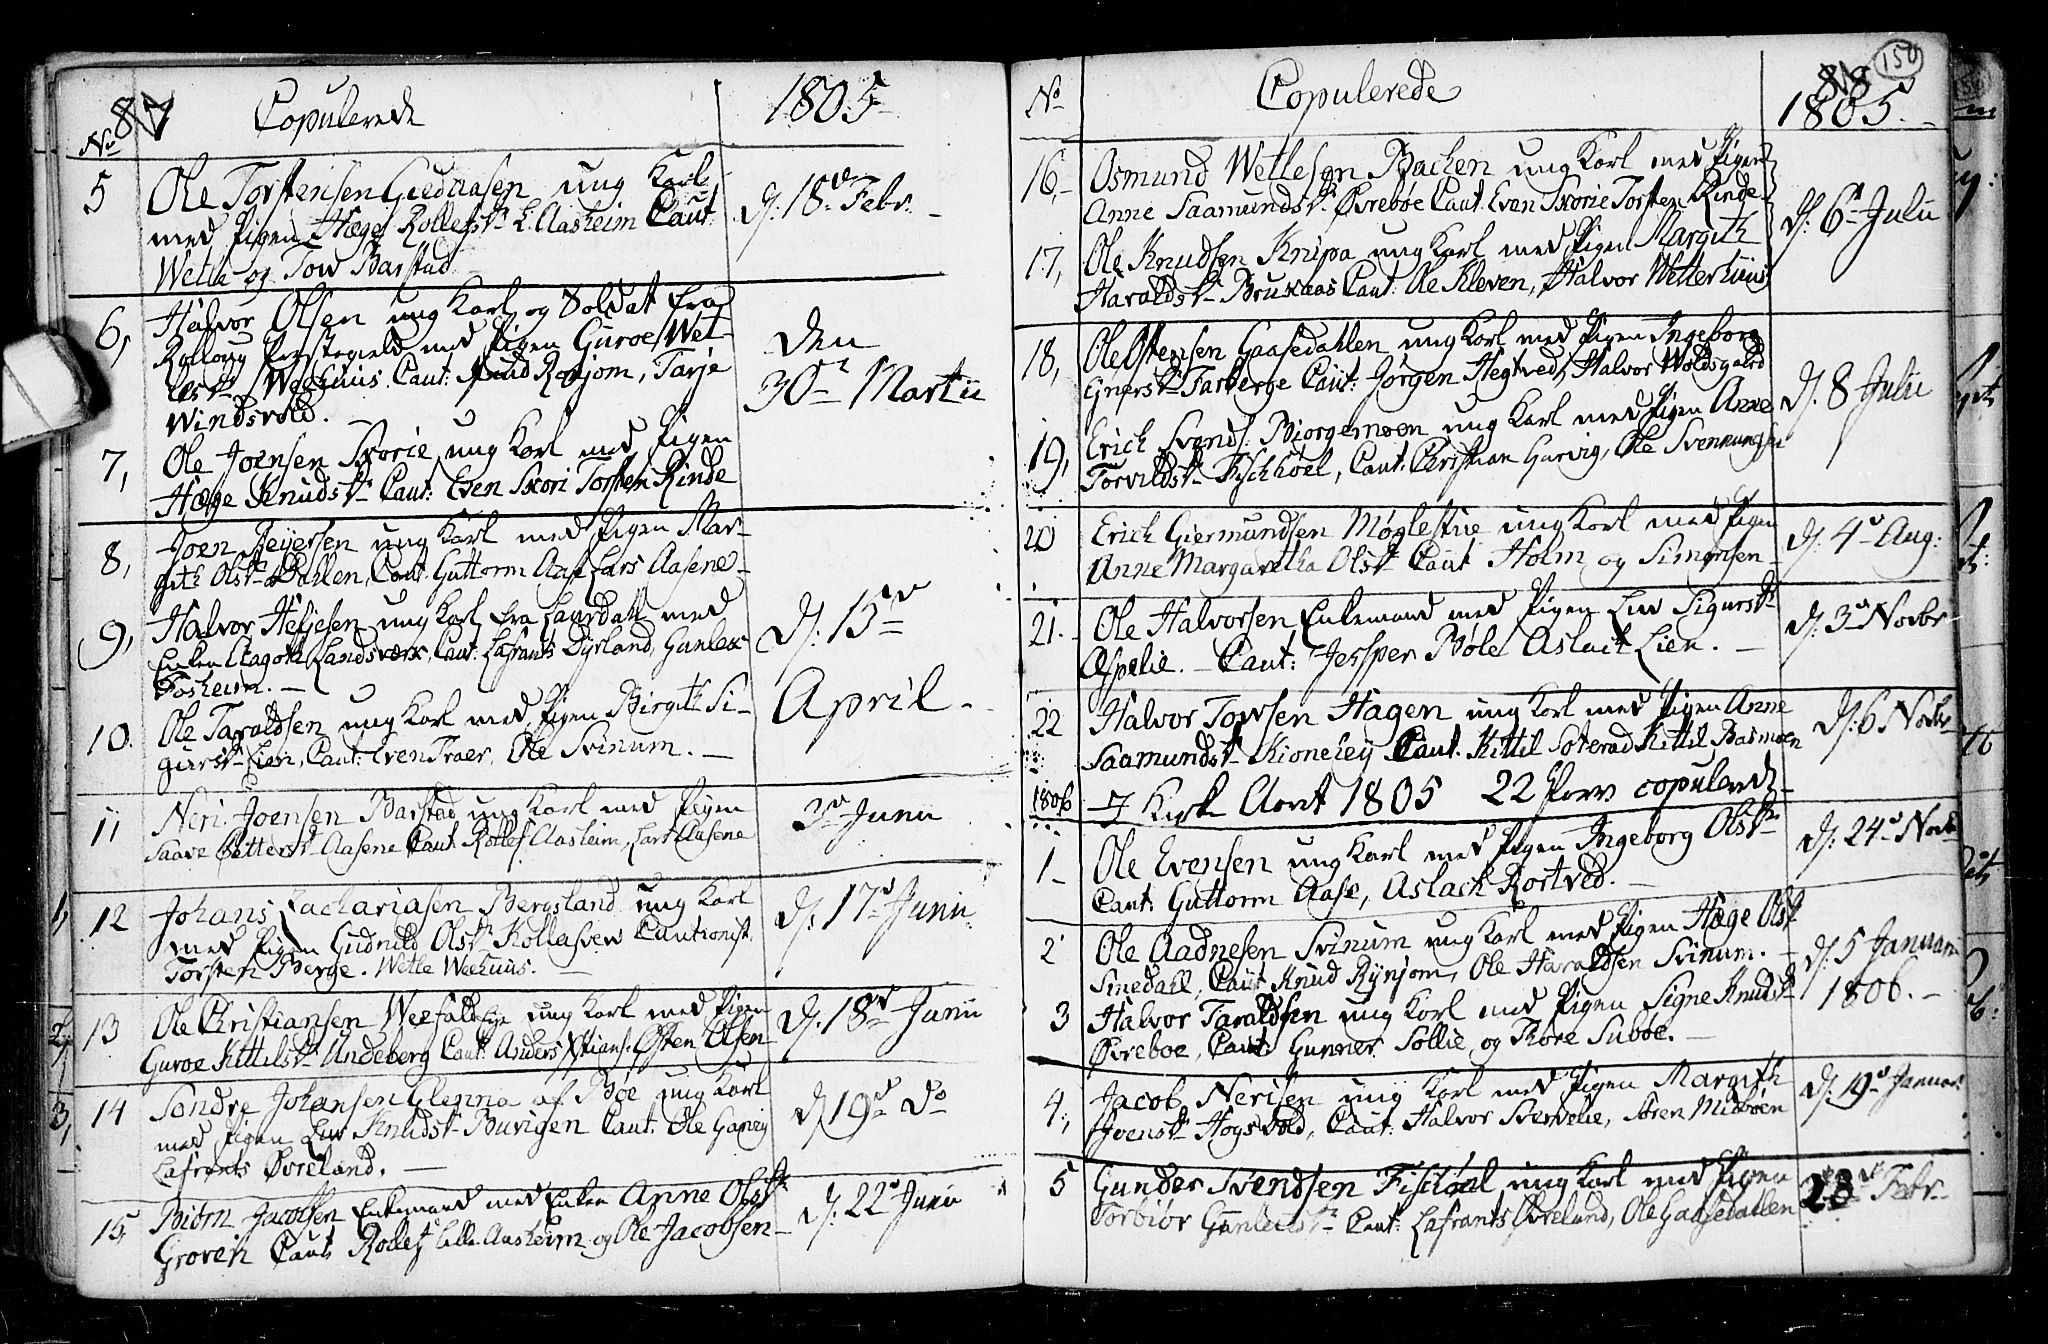 Copulerede
1805
No
5
Ole Torstensen Giedaasen ung Karl
med Pigen Hæge Rollefsdr L. Aasheim Caut:
Wetle og Tow Barstad
d: 18de Febr.
6,
Halvor Olsen ung Karl og Soldat fra
Rolloug Præstegield med Pigen Guroe Wet-
lesdr Weehuus Caut: Knud Rønjom, Tarje
Windsvold.
Den
30te Martii
7,
Ole Joensen Skorie ung Karl med Pigen
Hæge Knudsdr Caut: Even Skori Torsten Rinde
8,
Joen Reyersen ung Karl med Pigen Mar-
gith Olsdr Dahlen, Caut: Guttorm Aase Lars Aasene
9,
Halvor Heljesen ung Karl fra Laurdahl med
Enken Aagoth Landsværk, Caut: Lafrants Dyrland, Gunlex
Fosheim.
d: 15de
April
10.
Ole Taraldsen ung Karl med Pigen Birgith Si-
gursdr Lien, Caut: Even Traer, Ole Svinum.
11
Neri Joensen Barstad ung Karl med Pigen
Saave Pettersdr Aasene Caut: Rollef Aasheim, Lars Aasene
3de Junii
12
Johans Zachariasen Bergsland ung Karl
med Pigen Gudnild Olsdr Kollasvew Cautionist
Torsten Berge. Wetle Weehuus.
d: 17de Junii
13
Ole Christiansen Wexfaldeje ung Karl med Pigen
Guroe Kittilsdr Undeberg Caut: Anders Xstians: Østen Olsen
d. 18de Junii
14
Sondre Johansen Glenna af Bøe ung Karl
med Pigen Liv Knudsdr Buvigen Caut: Ole Garvig
Lafrants Øvreland.
d 19de Do
15,
Biørn Jacobsen Enkemand med Enken Anne Olsdr
Groven Caut: Rollef Lille Aasheim og Ole Jacobsen
d: 22de Junii
150
No
Copulerede
88
1805.
16,
Osmund Wetlesen Bachen ung Karl med Pigen
Anne Saamundsdr Øvrebøe Caut: Even Skorie Torsten Rinde
17,
Ole Knudsen Knipa ung Karl med Pigen Margith
Haraldsdr Bruxaas Caut: Ole Kleven, Halvor Wetterhuus
d: 6te Julii
18,
Ole Ostensen Gaasedahlen ung Karl med Pigen Ingeborg
Enersdr Tarberge Caut: Jørgen Hegtved, Halvor Woldsgaard
19,
Erich Svends: Biorgemoen ung Karl med Pigen Anne
Torvildsdr Fischhøel, Caut: Christian Garvig, Ole Svennungsen
d. 8 Julii
20
Erich Giermundsen Møglestue ung Karl med Pigen
Anne Margaretha Olsdr Caut Holm og Simonsen
d: 4de Aug:
21.
Ole Halvorsen Enkemand med Pigen Liv Sigursdr
Espelie. Caut: Jessper Bøle Aslack Lien.
d: 3de Novbr
22
Halvor Towsen Hagen ung Karl med Pigen Anne
Saamundsdr Kionehey Caut. Kittil Soterød Kittil Barmoen
d: 6 Novbr
1806
I Kirke Aaret 1805 22 Parr copulered
1
Ole Evensen ung Karl med Pigen Ingeborg Olsdr
Caut: Guttorm Aase, Aslach Kortved.
d: 24de Novb
2
Ole Aadnesen Svinum ung Karl med Pigen Hæge Olsdr
Sinedahl, Caut: Knud Rynjom, Ole Haraldsen Svinum.
3
Halvor Taraldsen ung Karl med Pigen Signe Knudsdr
Øvreboe, Caut: Gunner Sollie og Tore Suboe.
d: 5 Januarii
1806.
4,
Jacob Nerisen ung Karl med Pigen Margith
Joensdr Hogsvold, Caut: Halvor Svenvelie, Søren Midbøen
d: 19de Januar:
5
Gunder Svendsen Fischøel ung Karl med Pigen
Torbior Gunleiksdr Caut: Lafrants Øvreland, Ole Gaasedahlen
28de Febr.